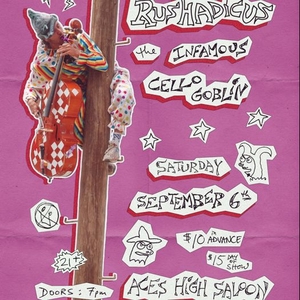 RUSHADICUS
the INFAMOUS
CELLO GOBLIN
SATURDAY
SEPTEMBER 6th
$10 in ADVANCE
$15 DAY of SHOW
21+
DOORS: 7pm
ACES HIGH SALOON